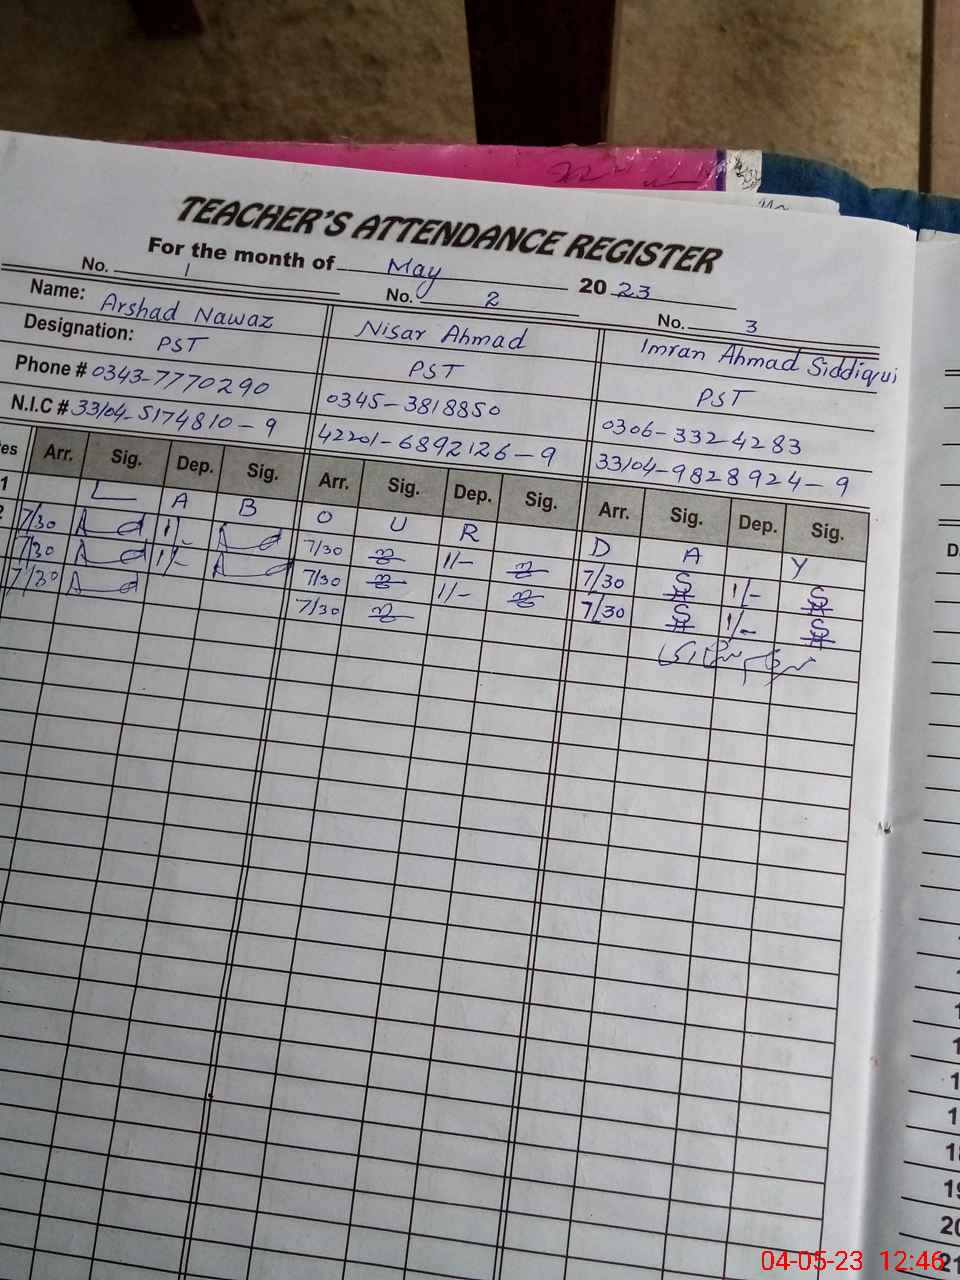 TEACHER'S ATTENDANCE REGISTER
For the month of May 2023
No. 1 No. 2 No. 3
Name: Arshad Nawaz Nisar Ahmad Imran Ahmad Siddiqui
Designation: PST PST PST
Phone # 0343-7770290 0345-3818850 0306-3324283
N.I.C # 33104-5174810-9 42201-6892126-9 33104-9828924-9
Arr. Sig. Dep. Sig. Arr. Sig. Dep. Sig. Arr. Sig. Dep. Sig.
1 L A B O U R D A Y
2 7/30 1/- 7/30 1/- 7/30 1/-
7/30 1/- 7/30 1/- 7/30 1/-
7/30 7/30
D
18
19
20
21
04-05-23 12:46